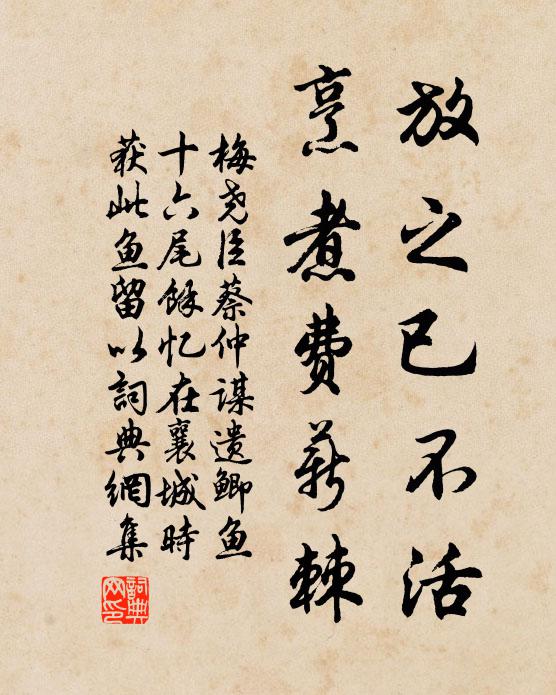 放之已不活
烹煮费薪棘
梅尧臣蔡仲谋遗鲫鱼
十六尾馀忆在襄城時
获此鱼留以詞典網集
詞典
网印